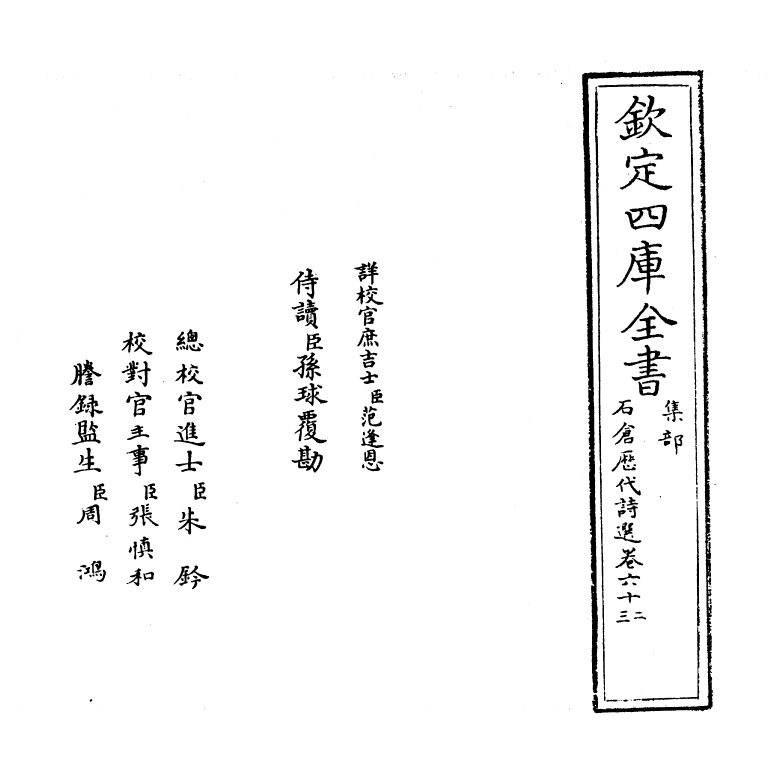 欽定四庫全書
集部
石倉歷代詩選卷六十二三
詳校官庶吉士臣范逢恩
侍讀臣孫球覆勘
總校官進士臣朱鈐
校對官主事臣張慎和
謄錄監生臣周鴻